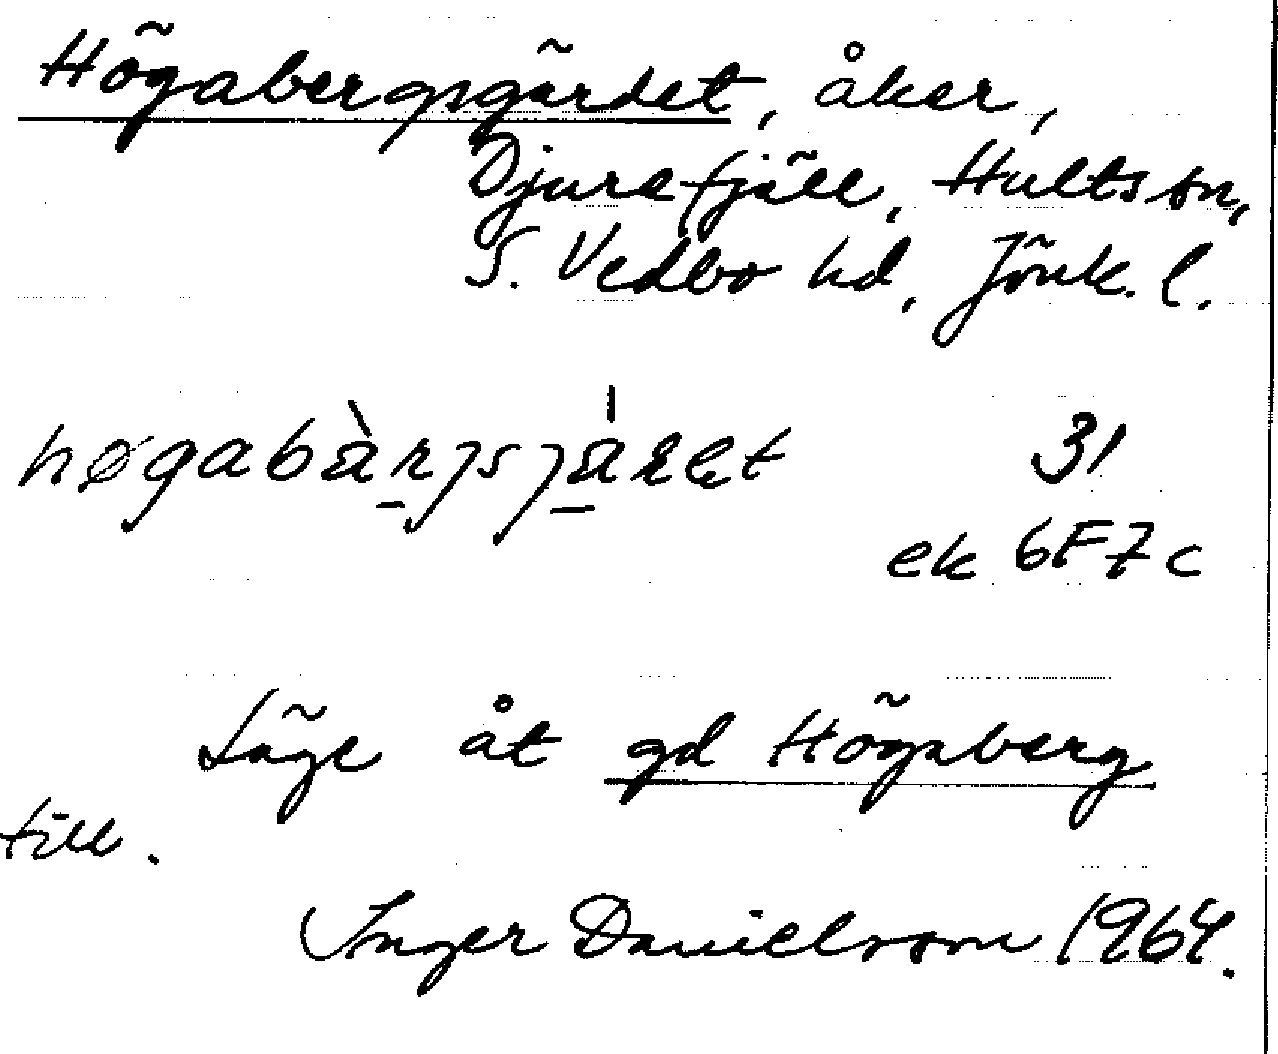 Högabergsgärdet, åker,
Djurefjäll, Hults sn,
S. Vedbo hd, Jönk. l.
høgabàrjsjáret 31
ek 6F7c
Läge åt gd Högaberg
till.
Inger Danielsson 1964.